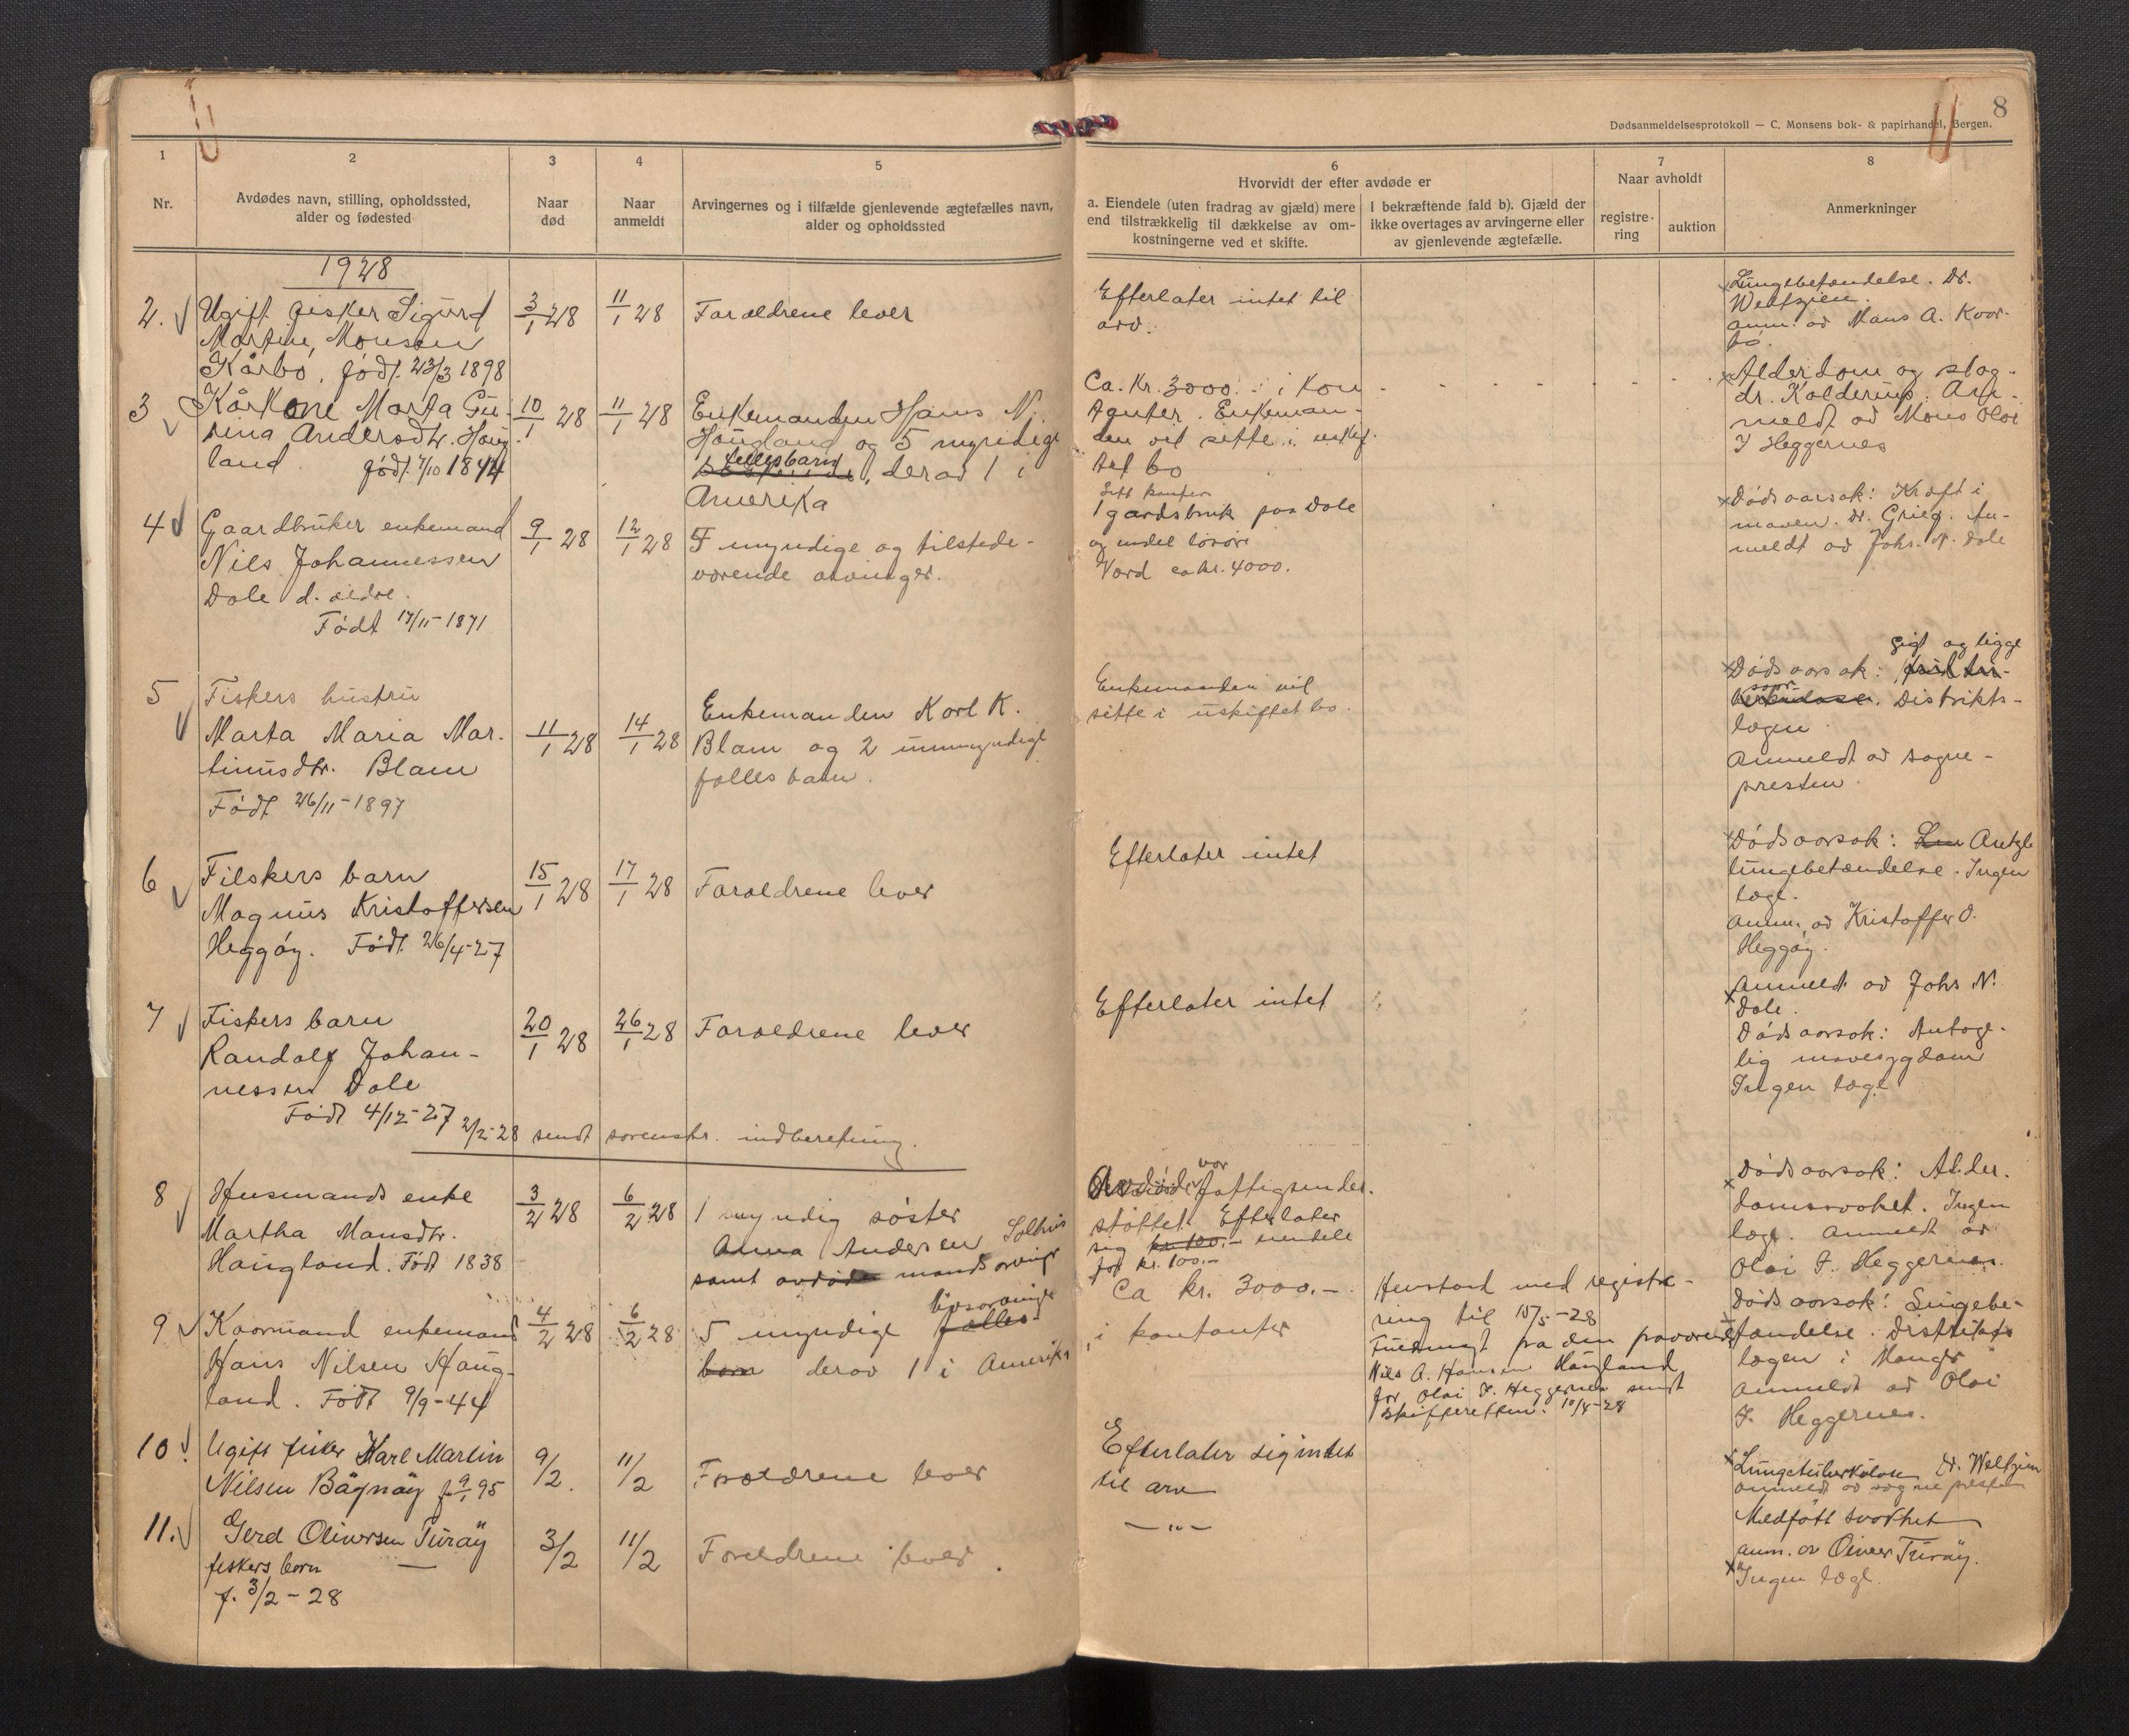 8
Dødsanmeldelsesprotokoll — C. Monsens bok- & papirhandel, Bergen.
1
Nr.
2
Avdødes navn, stilling, opholdssted,
alder og fødested
3
Naar
død
4
Naar
anmeldt
5
Arvingernes og i tilfælde gjenlevende ægtefælles navn,
alder og opholdssted
6
Hvorvidt der efter avdøde er
a. Eiendele (uten fradrag av gjæld) mere
end tilstrækkelig til dækkelse av om-
kostningerne ved et skifte.
I bekræftende fald b). Gjæld der
ikke overtages av arvingerne eller
av gjenlevende ægtefælle.
7
Naar avholdt
registre-
ring
auktion
8
Anmerkninger
1928
2.
Ugift fisker Sigurd
Martin Monsen
Kårbø, født 23/3 1898
3/1 28
11/1 28
Forældrene lever
Efterlater intet til
arv.
Lungebetændelse. Dr.
Weltzien.
anm. av Mons A. Kvar-
bø.
3
Kårkone Marta Gu-
rina Andersdtr. Houg-
land født 7/10 1844
10/1 28
11/1 28
Enkemanden Hans N.
Hougland og 5 myndige
fellesbarn, derav 1 i
Amerika
Ca. Kr. 3000.- i kon-
tanter. Enkeman-
den vil sitte i uskif-
tet bo
Alderdom og slag.
dr. Kolderup. An-
meldt av Mons Olai
J Heggernes
4
Gaardbruker enkemand
Nils Johannessen
Dale d. ældre.
Født 17/11-1871
9/1 28
12/1 28
5 myndige og tilstede-
værende arvinger.
1 gardsbruk paa Dale
og endel løsøre
Verd ca kr. 4000.
Dødsaarsak: Kræft i
maven. dr. Grieg. An-
meldt av Johs. N. Dale
5
Fiskers hustru
Marta Maria Mar-
tinusdtr. Blam
Født 26/11-1897
11/1 28
14/1 28
Enkemanden Karl K.
Blam og 2 umyndige
fælles barn.
Enkemanden vil
sitte i uskiftet bo.
gigt og ligge
Dødsaarsak:
saar. Distrikts-
lægen
Anmeldt av sogne-
presten.
6
Filskers barn
Magnus Kristoffersen
Heggøy. Født 26/4-27
15/1 28
17/1 28
Forældrene lever
Efterlater intet
Dødsaarsak: Antagl
lungebetændelse. Ingen
læge.
anm. av Kristoffer O.
Heggøy.
7
Fiskers barn
Randolf Johan-
nessen Dale
Født 4/12-27
20/1 28
26/1 28
Forældrene lever
Efterlater intet
Anmeldt av Johs N.
Dale.
Dødsaarsak: Antage-
lig mavesygdom
Ingen læge
2/2-28 sendt sorenskr. indberetning.
8
Husmands enke
Martha Monsdtr.
Haugland. Født 1838
3/2 28
6/2 28
1 myndig søster
Anna Andersen Solhus
samt avdøde mands arvinger
Avdøde var fattigunder-
støttet. Efterlater
sig kr 100.- eiendele
for kr. 100.-
Dødsaarsak: Alder-
domssvakhet. Ingen
læge. Anmeldt av
Olai J. Heggernes.
9
Kaarmand enkemand
Hans Nilsen Haug-
land. Født 9/9-44
4/2 28
6/2 28
5 myndige fælles-
livsarvinger
barn derav 1 i Amerika
Ca kr. 3000.-
i kontanter
Henstand med registre-
ring til 15/5-28
Fuldmagt fra den fraværende
Nils A. Hansen Haugland
for Olai J. Heggernes sendt
skifteretten. 10/4-28
Dødsaarsak: Lungebe-
tændelse. Distrikts
lægen i Manger
Anmeldt av Olai
J. Heggernes.
10
Ugift fisker Karl Martin
Nilsen Bågnøy f. 9/1 95
9/2.
11/2
Forældrene lever
Efterlater sig intet
til arv
Lungetuberkulose Dr. Weltzien
anmeldt av sognepresten
11.
Gerd Oliversen Turøy
fiskers barn
f. 3/2-28
3/2
11/2
Foreldrene lever.
—"—
Medfødt svakhet
anm. av Oliver Turøy.
Ingen læge.